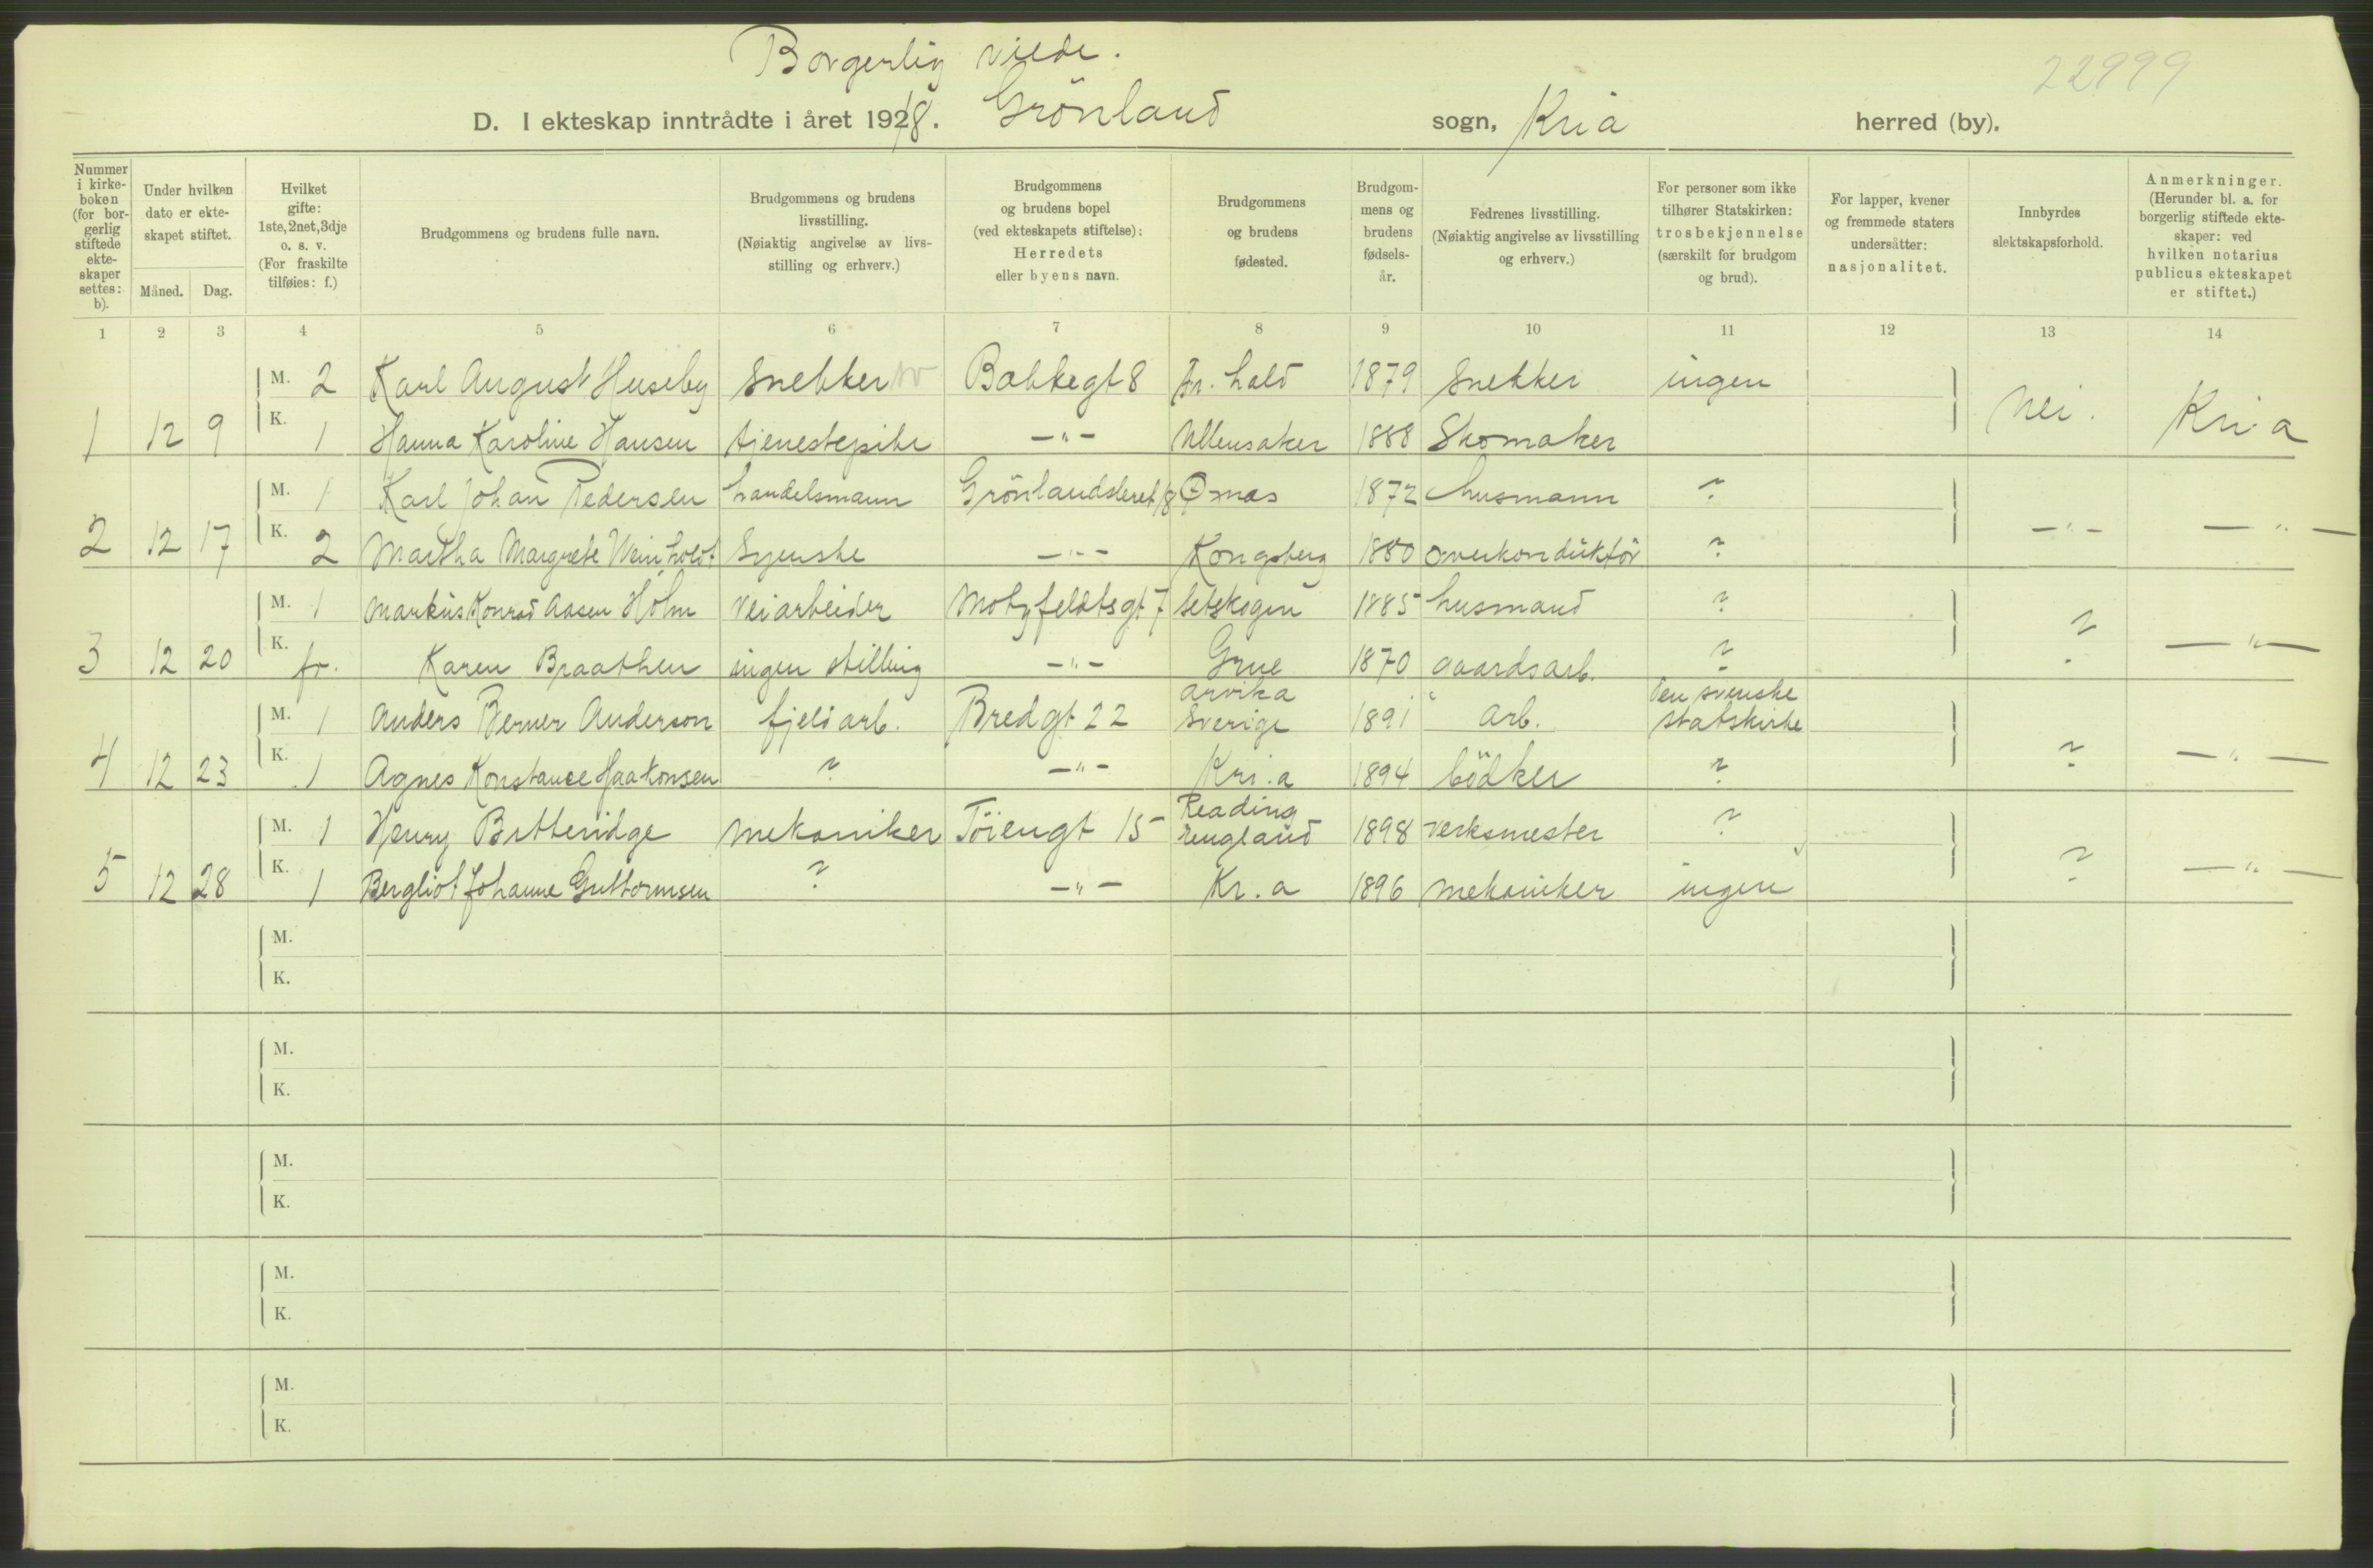 Borgerlig viede.
22999
D. I ekteskap inntrådte i året 1918. Grönland sogn, Kria herred (by).
Nummer i kirke-boken (for bor-gerlig stiftede ekte-skaper settes: b).
Under hvilken dato er ekte-skapet stiftet.
Måned. Dag.
Hvilket gifte: 1ste, 2net, 3dje o. s. v. (For fraskilte tilføies: f.)
Brudgommens og brudens fulle navn.
Brudgommens og brudens livsstilling. (Nøiaktig angivelse av livs-stilling og erhverv.)
Brudgommens og brudens bopel (ved ekteskapets stiftelse): Herredets eller byens navn.
Brudgommens og brudens fødested.
Brudgom-mens og brudens fødsels-år.
Fedrenes livsstilling. (Nøiaktig angivelse av livsstilling og erhverv.)
For personer som ikke tilhører Statskirken: trosbekjennelse (særskilt for brudgom og brud).
For lapper, kvener og fremmede staters undersåtter: nasjonalitet.
Innbyrdes slektskapsforhold.
Anmerkninger. (Herunder bl. a. for borgerlig stiftede ekte-skaper: ved hvilken notarius publicus ekteskapet er stiftet.)
1 2 3 4 5 6 7 8 9 10 11 12 13 14
M. 2 Karl August Huseby Snekker Bakkegt 8 Fr. hald 1879 Snekker ingen
1 12 9 K. 1 Hanna Karoline Hansen tjenestepike -"- Ullensaker 1888 Skomaker Nei. Kri.a
M. 1 Karl Johan Pedersen handelsmann Grönlandsleret 18 1872 husmann ?
2 12 17 K. 2 Martha Margrete Weinholdt Syerske -"- Kongsberg 1880 overkonduktör ? -"- -"-
M. 1 Markus Konrad Aasen Holm veiarbeider Motzfeldtsgt 7 Setskogen 1885 husmand ?
3 12 20 K. fr. Karen Braathen ingen stilling -"- Grue 1870 gaardsarb. ? ? -"-
M. 1 Anders Berner Anderson fjeldarb. Bredgt 22 Arvika Sverige 1891 Arb. Den svenske statskirke
4 12 23 K. 1 Agnes Konstance Haakonsen ? -"- Kri.a 1894 bödker ? ? -"-
M. 1 Henry Bitteridge mekaniker Töiengt 15 Reading England 1898 verksmester ?
5 12 28 K. 1 Bergliot Johanne Guttormsen ? -"- Kr.a 1896 mekaniker ingen ? -"-
M.
K.
M.
K.
M.
K.
M.
K.
M.
K.